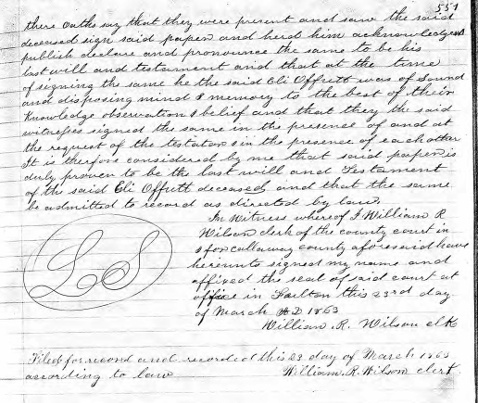 551
there oaths say that they were present and saw the said
deceased sign said paper and herd him acknowledged
publish declare and pronounce the same to be his
last will and testament and that at the time
of signing the same he the said Eli Offutt was of Sound
and disposing mind & memory to the best of their
Knowledge observation & belief and that they the said
witnesses signed the same in the presence of and at
the request of the testator & in the presence of each other
It is therfore considered by me that said paper is
duly proven to be the last will and Testament
of the said Eli Offutt deceased and that the same
be admitted to record as directed by law.
In Witness whereof I William R
Wilson clerk of the county court in
& for Callaway county aforesaid have
hereunto signed my name and
affixed the seal of said court at
office in Foulton this 23rd day
of March AD 1863
William . R. Wilson clk
LS
Filed for record and recorded this 23 day of March 1863
according to law William . R. Wilson clerk